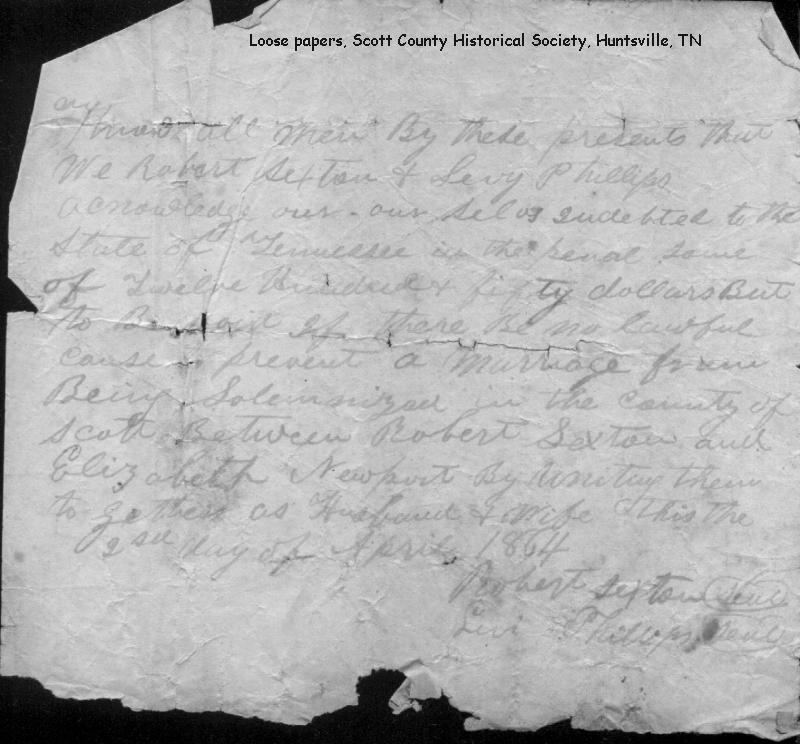 Loose papers, Scott County Historical Society, Huntsville, TN
Know all men By these presents that
We Robert Sexton & Levy Phillips
acnowledge our-our selvs indebted to the
State of Tennessee in the penal some
of Twelve Hundred & fifty dollars But
to Be void If there Be no lawful
cause to prevent a Marriage from
Being Solemnized in the county of
Scott Between Robert Sexton and
Elizabeth Newport By Uniting them
to gethers as Husband & Wife this the
2nd day of April 1864
Robert Sexton Seal
Levi Phillips Seal